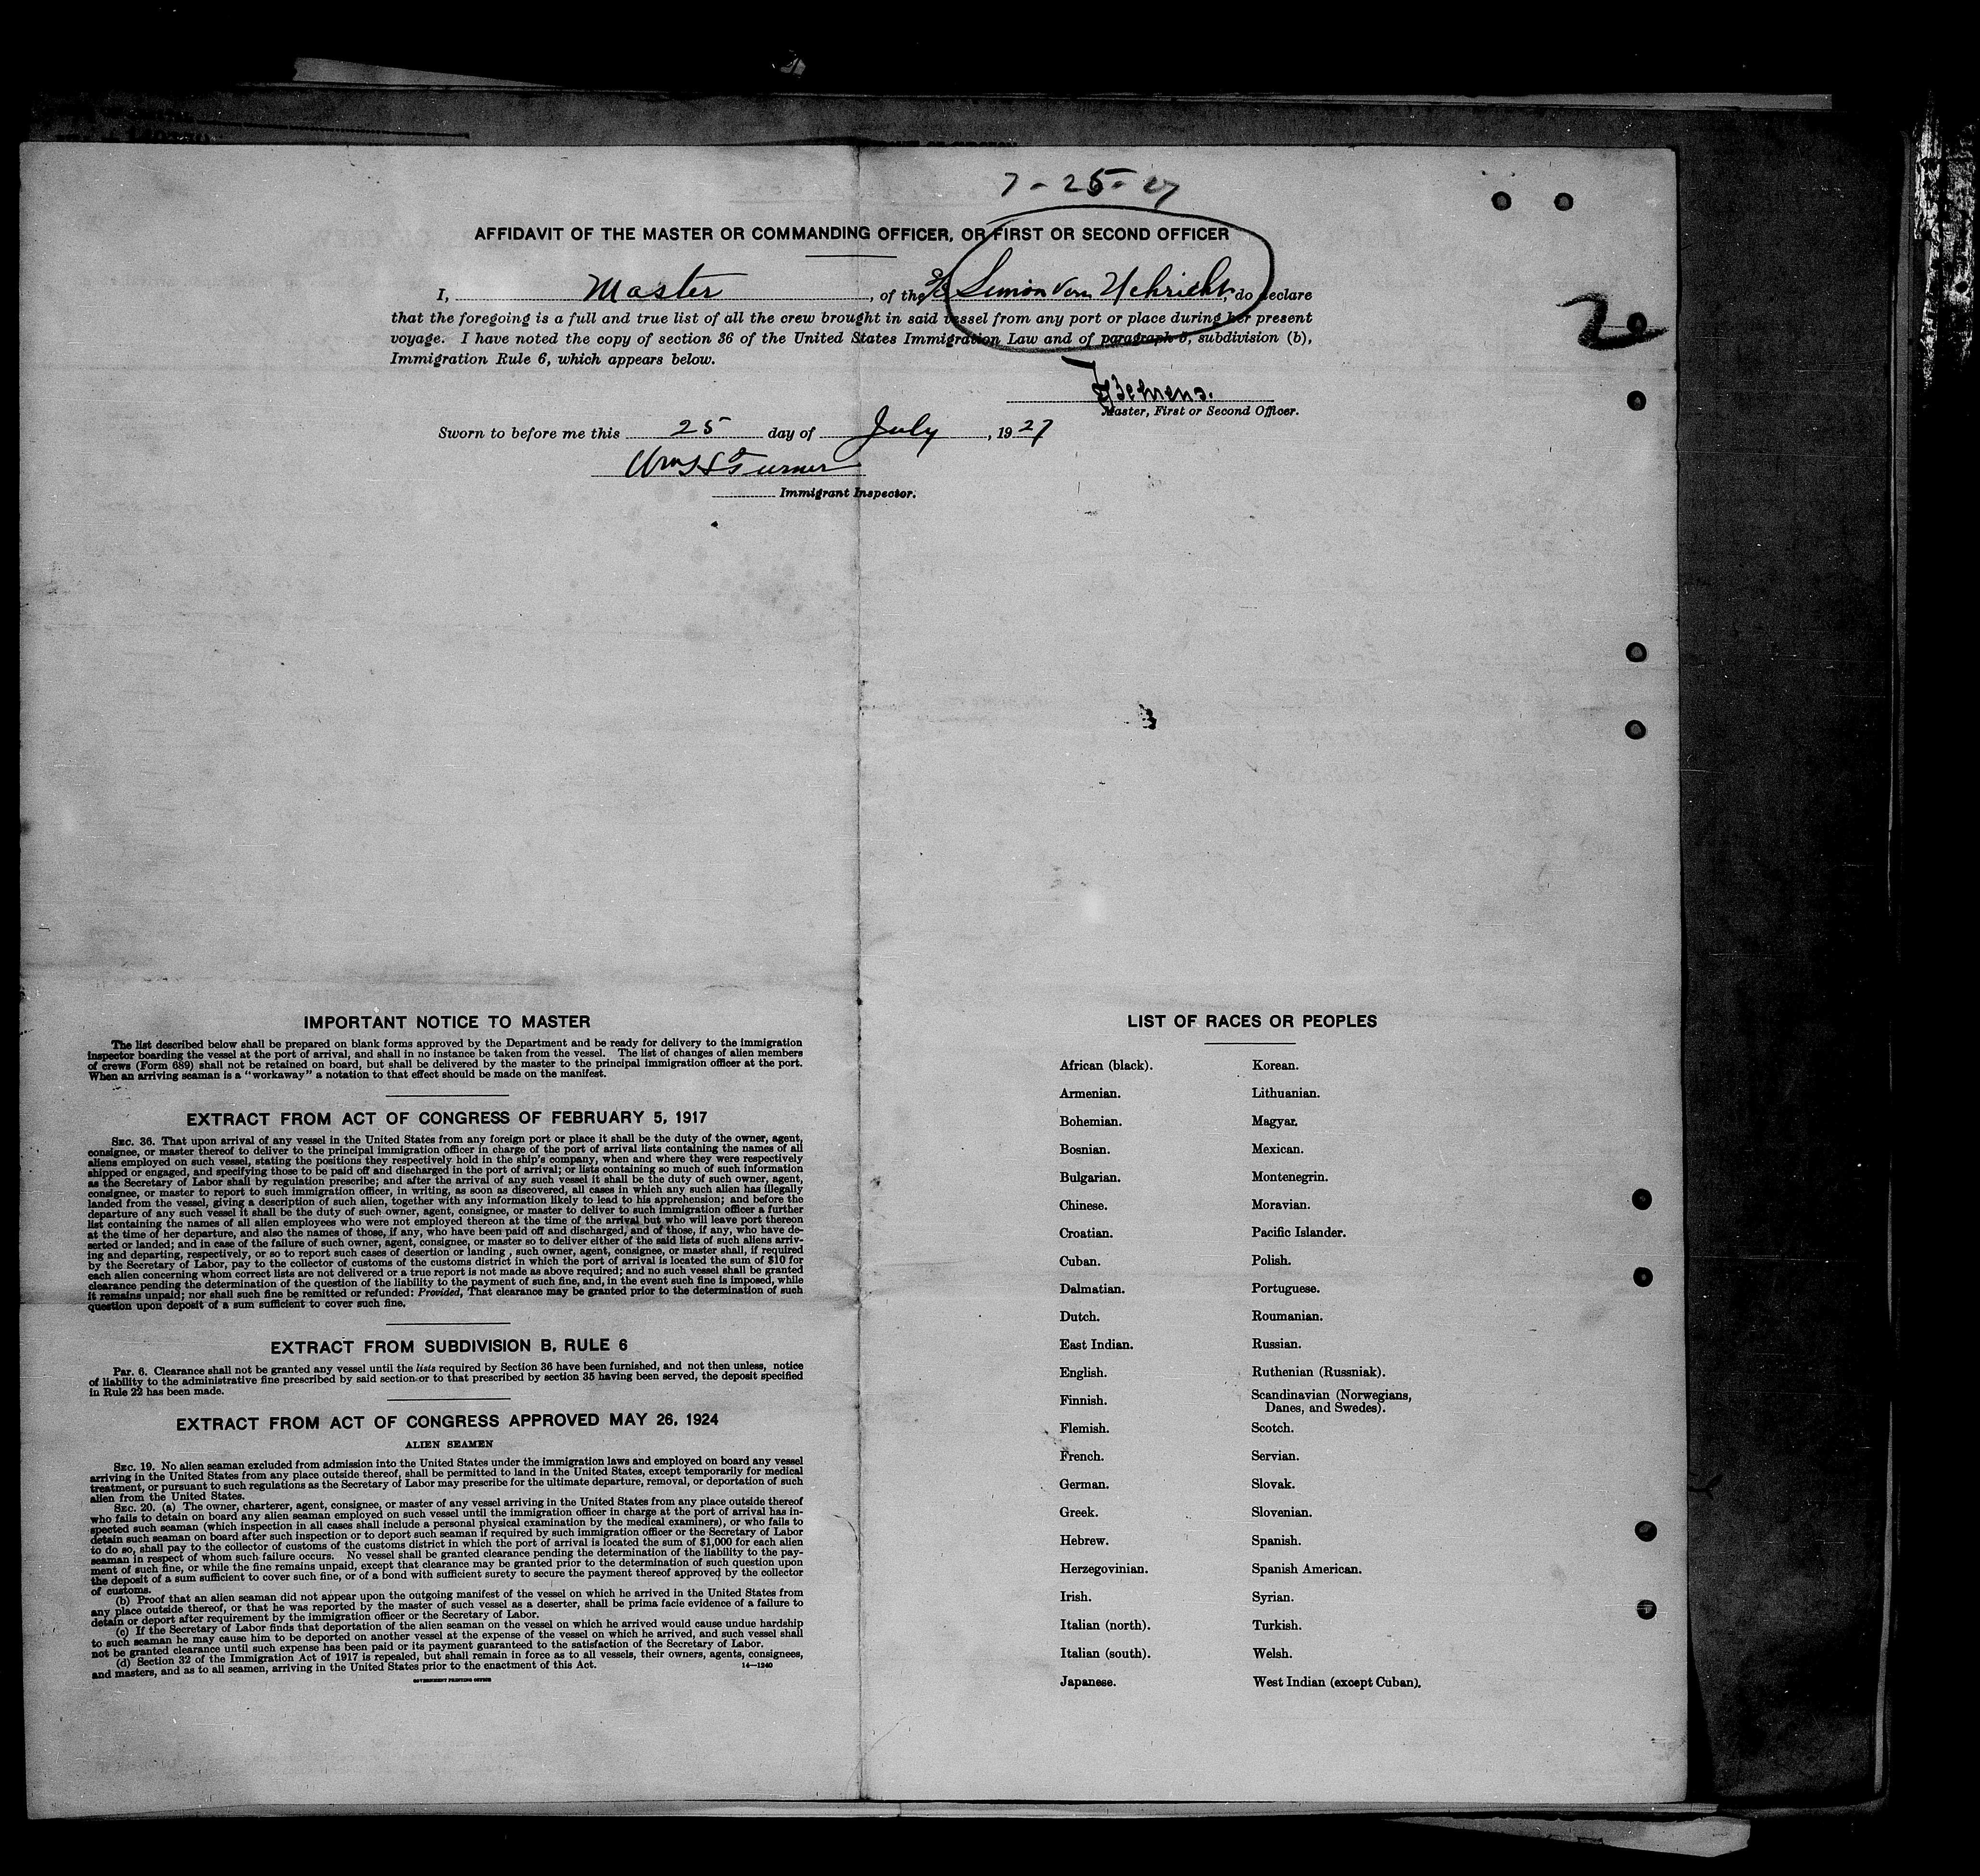 7 - 25 - 27
AFFIDAVIT OF THE MASTER OR COMMANDING OFFICER, OR FIRST OR SECOND OFFICER
I, Master, of the S/S Simon von Utkricht, do declare
that the foregoing is a full and true list of all the crew brought in said vessel from any port or place during her present
voyage. I have noted the copy of section 36 of the United States Immigration Law and of paragraph b, subdivision (b),
Immigration Rule 6, which appears below.
2
Behrens.
Master, First or Second Officer.
Sworn to before me this 25 day of July, 1927
Turner
Immigrant Inspector.
IMPORTANT NOTICE TO MASTER
The list described below shall be prepared on blank forms approved by the Department and be ready for delivery to the immigration
inspector boarding the vessel at the port of arrival, and shall in no instance be taken from the vessel. The list of changes of alien members
of crews (Form 689) shall not be retained on board, but shall be delivered by the master to the principal immigration officer at the port.
When an arriving seaman is a "workaway" a notation to that effect should be made on the manifest.
EXTRACT FROM ACT OF CONGRESS OF FEBRUARY 5, 1917
SEC. 36. That upon arrival of any vessel in the United States from any foreign port or place it shall be the duty of the owner, agent,
consignee, or master thereof to deliver to the principal immigration officer in charge of the port of arrival lists containing the names of all
aliens employed on such vessel, stating the positions they respectively hold in the ship's company, when and where they were respectively
shipped or engaged, and specifying those to be paid off and discharged in the port of arrival; or lists containing so much of such information
as the Secretary of Labor shall by regulation prescribe; and after the arrival of any such vessel it shall be the duty of such owner, agent,
consignee, or master to report to such immigration officer, in writing, as soon as discovered, all cases in which any such alien has illegally
landed from the vessel, giving a description of such alien, together with any information likely to lead to his apprehension; and before the
departure of any such vessel it shall be the duty of such owner, agent, consignee, or master to deliver to such immigration officer a further
list containing the names of all alien employees who were not employed thereon at the time of the arrival but who will leave port thereon
at the time of her departure, and also the names of those, if any, who have been paid off and discharged, and of those, if any, who have de-
serted or landed; and in case of the failure of such owner, agent, consignee, or master so to deliver either of the said lists of such aliens arriv-
ing and departing, respectively, or so to report such cases of desertion or landing , such owner, agent, consignee, or master shall, if required
by the Secretary of Labor, pay to the collector of customs of the customs district in which the port of arrival is located the sum of $10 for
each alien concerning whom correct lists are not delivered or a true report is not made as above required; and no such vessel shall be granted
clearance pending the determination of the question of the liability to the payment of such fine, and, in the event such fine is imposed, while
it remains unpaid; nor shall such fine be remitted or refunded: Provided, That clearance may be granted prior to the determination of such
question upon deposit of a sum sufficient to cover such fine.
EXTRACT FROM SUBDIVISION B, RULE 6
PAR. 6. Clearance shall not be granted any vessel until the lists required by Section 36 have been furnished, and not then unless, notice
of liability to the administrative fine prescribed by said section or to that prescribed by section 35 having been served, the deposit specified
in Rule 22 has been made.
EXTRACT FROM ACT OF CONGRESS APPROVED MAY 26, 1924
ALIEN SEAMEN
SEC. 19. No alien seaman excluded from admission into the United States under the immigration laws and employed on board any vessel
arriving in the United States from any place outside thereof, shall be permitted to land in the United States, except temporarily for medical
treatment, or pursuant to such regulations as the Secretary of Labor may prescribe for the ultimate departure, removal, or deportation of such
alien from the United States.
SEC. 20. (a) The owner, charterer, agent, consignee, or master of any vessel arriving in the United States from any place outside thereof
who fails to detain on board any alien seaman employed on such vessel until the immigration officer in charge at the port of arrival has in-
spected such seaman (which inspection in all cases shall include a personal physical examination by the medical examiners), or who fails to
detain such seaman on board after such inspection or to deport such seaman if required by such immigration officer or the Secretary of Labor
to do so, shall pay to the collector of customs of the customs district in which the port of arrival is located the sum of $1,000 for each alien
seaman in respect of whom such failure occurs. No vessel shall be granted clearance pending the determination of the liability to the pay-
ment of such fine, or while the fine remains unpaid, except that clearance may be granted prior to the determination of such question upon
the deposit of a sum sufficient to cover such fine, or of a bond with sufficient surety to secure the payment thereof approved by the collector
of customs.
(b) Proof that an alien seaman did not appear upon the outgoing manifest of the vessel on which he arrived in the United States from
any place outside thereof, or that he was reported by the master of such vessel as a deserter, shall be prima facie evidence of a failure to
detain or deport after requirement by the immigration officer or the Secretary of Labor.
(c) If the Secretary of Labor finds that deportation of the alien seaman on the vessel on which he arrived would cause undue hardship
to such seaman he may cause him to be deported on another vessel at the expense of the vessel on which he arrived, and such vessel shall
not be granted clearance until such expense has been paid or its payment guaranteed to the satisfaction of the Secretary of Labor.
(d) Section 32 of the Immigration Act of 1917 is repealed, but shall remain in force as to all vessels, their owners, agents, consignees,
and masters, and as to all seamen, arriving in the United States prior to the enactment of this Act.
14—1240
GOVERNMENT PRINTING OFFICE
LIST OF RACES OR PEOPLES
African (black).
Armenian.
Bohemian.
Bosnian.
Bulgarian.
Chinese.
Croatian.
Cuban.
Dalmatian.
Dutch.
East Indian.
English.
Finnish.
Flemish.
French.
German.
Greek.
Hebrew.
Herzegovinian.
Irish.
Italian (north).
Italian (south).
Japanese.
Korean.
Lithuanian.
Magyar.
Mexican.
Montenegrin.
Moravian.
Pacific Islander.
Polish.
Portuguese.
Roumanian.
Russian.
Ruthenian (Russniak).
Scandinavian (Norwegians,
Danes, and Swedes).
Scotch.
Servian.
Slovak.
Slovenian.
Spanish.
Spanish American.
Syrian.
Turkish.
Welsh.
West Indian (except Cuban).